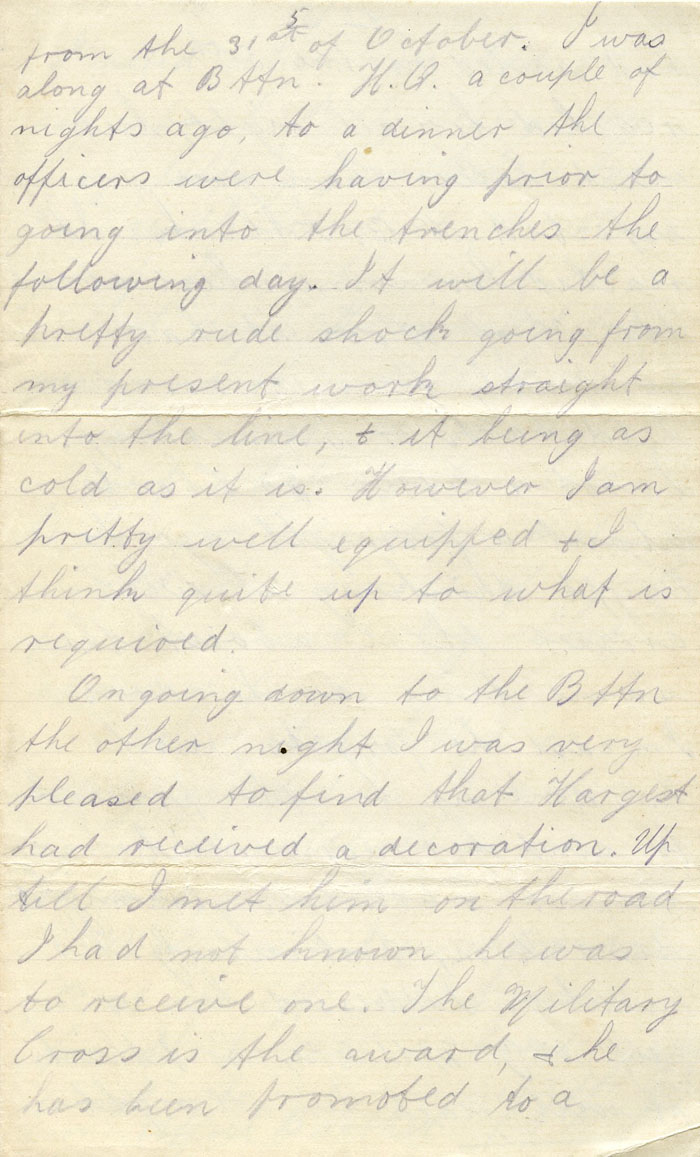 5
from the 31st of October. I was
along at Bttn. H.Q. a couple of
nights ago, to a dinner the
officers were having prior to
going into the trenches the
following day. It will be a
pretty rude shock going from
my present work straight
into the line, & it being as
cold as it is. However I am
pretty well equipped & I
think quite up to what is
required.
On going down to the Bttn
the other night I was very
pleased to find that Hargest
had received a decoration. Up
till I met him on the road
I had not known he was
to receive one. The Military
Cross is the award, & he
has been promoted to a